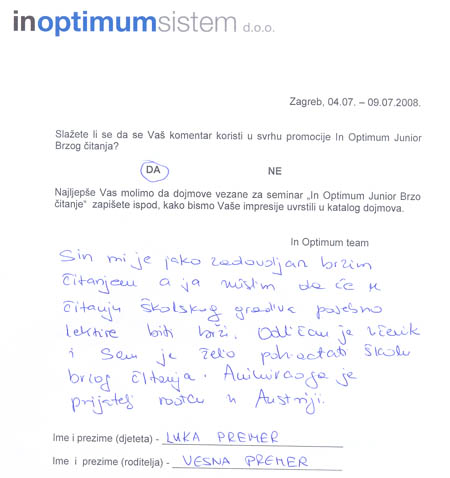 inoptimumsistem d.o.o.
Zagreb, 04.07. – 09.07.2008.
Slažete li se da se Vaš komentar koristi u svrhu promocije In Optimum Junior
Brzog čitanja?
DA NE
Najljepše Vas molimo da dojmove vezane za seminar „In Optimum Junior Brzo
čitanje" zapišete ispod, kako bismo Vaše impresije uvrstili u katalog dojmova.
In Optimum team
Sin mi je jako zadovoljan brzim
čitanjem a ja mislim da će u
čitanju školskog gradiva posebno
lektire biti brži. Odličan je učenik
i sam je želio pohađati školu
brzog čitanja. Animirao ga je
prijatelj u Austriji.
Ime i prezime (djeteta) - LUKA PREMER
Ime i prezime (roditelja) - VESNA PREMER